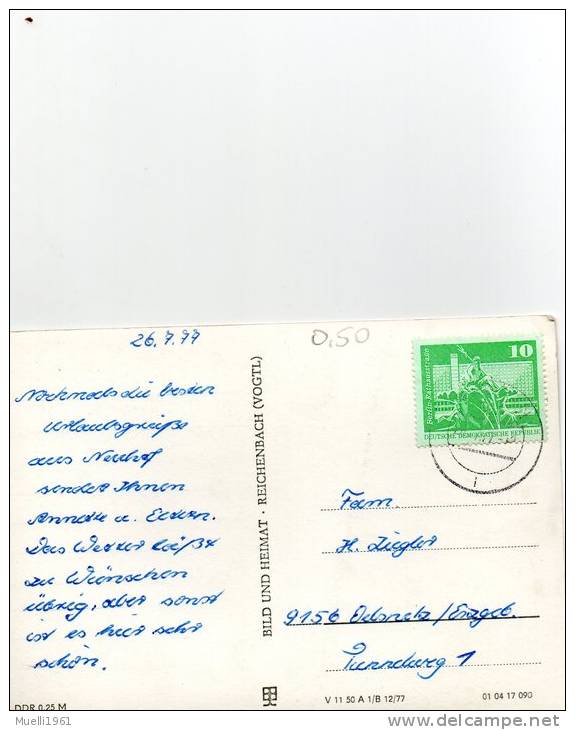 26.7.77
0,50
Nochmals die besten
Urlaubsgrüße
aus Neuhof
sendet Ihnen
Annette u. Eltern.
Das Wetter läßt
zu Wünschen
übrig, aber sonst
ist es hier sehr
schön.
DDR 0,25 M
BILD UND HEIMAT · REICHENBACH (VOGTL)
10
Berlin-Rathausstraße
DEUTSCHE DEMOKRATISCHE REPUBLIK
Fam.
H. Ziegler
9156 Oelsnitz/Erzgeb.
1
V 11 50 A 1/B 12/77
01 04 17 090
Muelli1961
www.delcampe.net